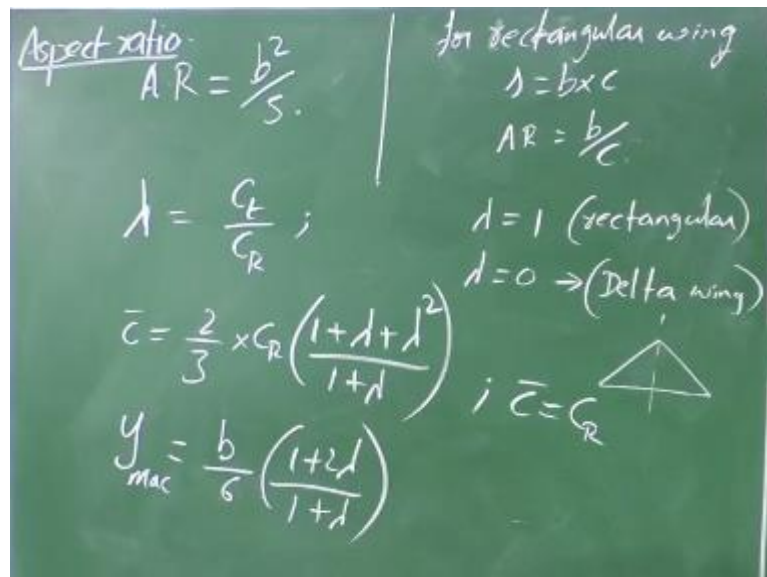 Aspect ratio.
AR = b²/S.
λ = Ct/CR ;
c̄ = 2/3 × CR ((1+λ+λ²)/(1+λ))
ymac = b/6 ((1+2λ)/(1+λ))
for rectangular wing
s = b×c
AR = b/c
λ = 1 (rectangular)
λ = 0 → (Delta wing)
; c̄ = CR